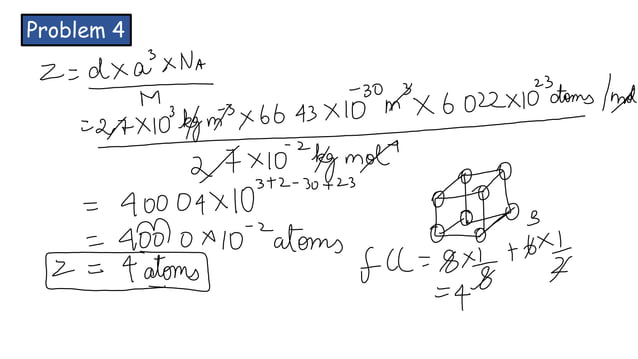 Problem 4
Z = d × a³ × NA
M
= 2.7 × 10³ kg m⁻³ × 66.43 × 10⁻³⁰ m³ × 6.022 × 10²³ atoms / mol
2.7 × 10⁻² kg mol⁻¹
= 400.04 × 10³⁺²⁻³⁰⁺²³
= 400.0 × 10⁻² atoms
Z = 4 atoms
3
fcc = 8 × 1/8 + 6 × 1/2
= 4